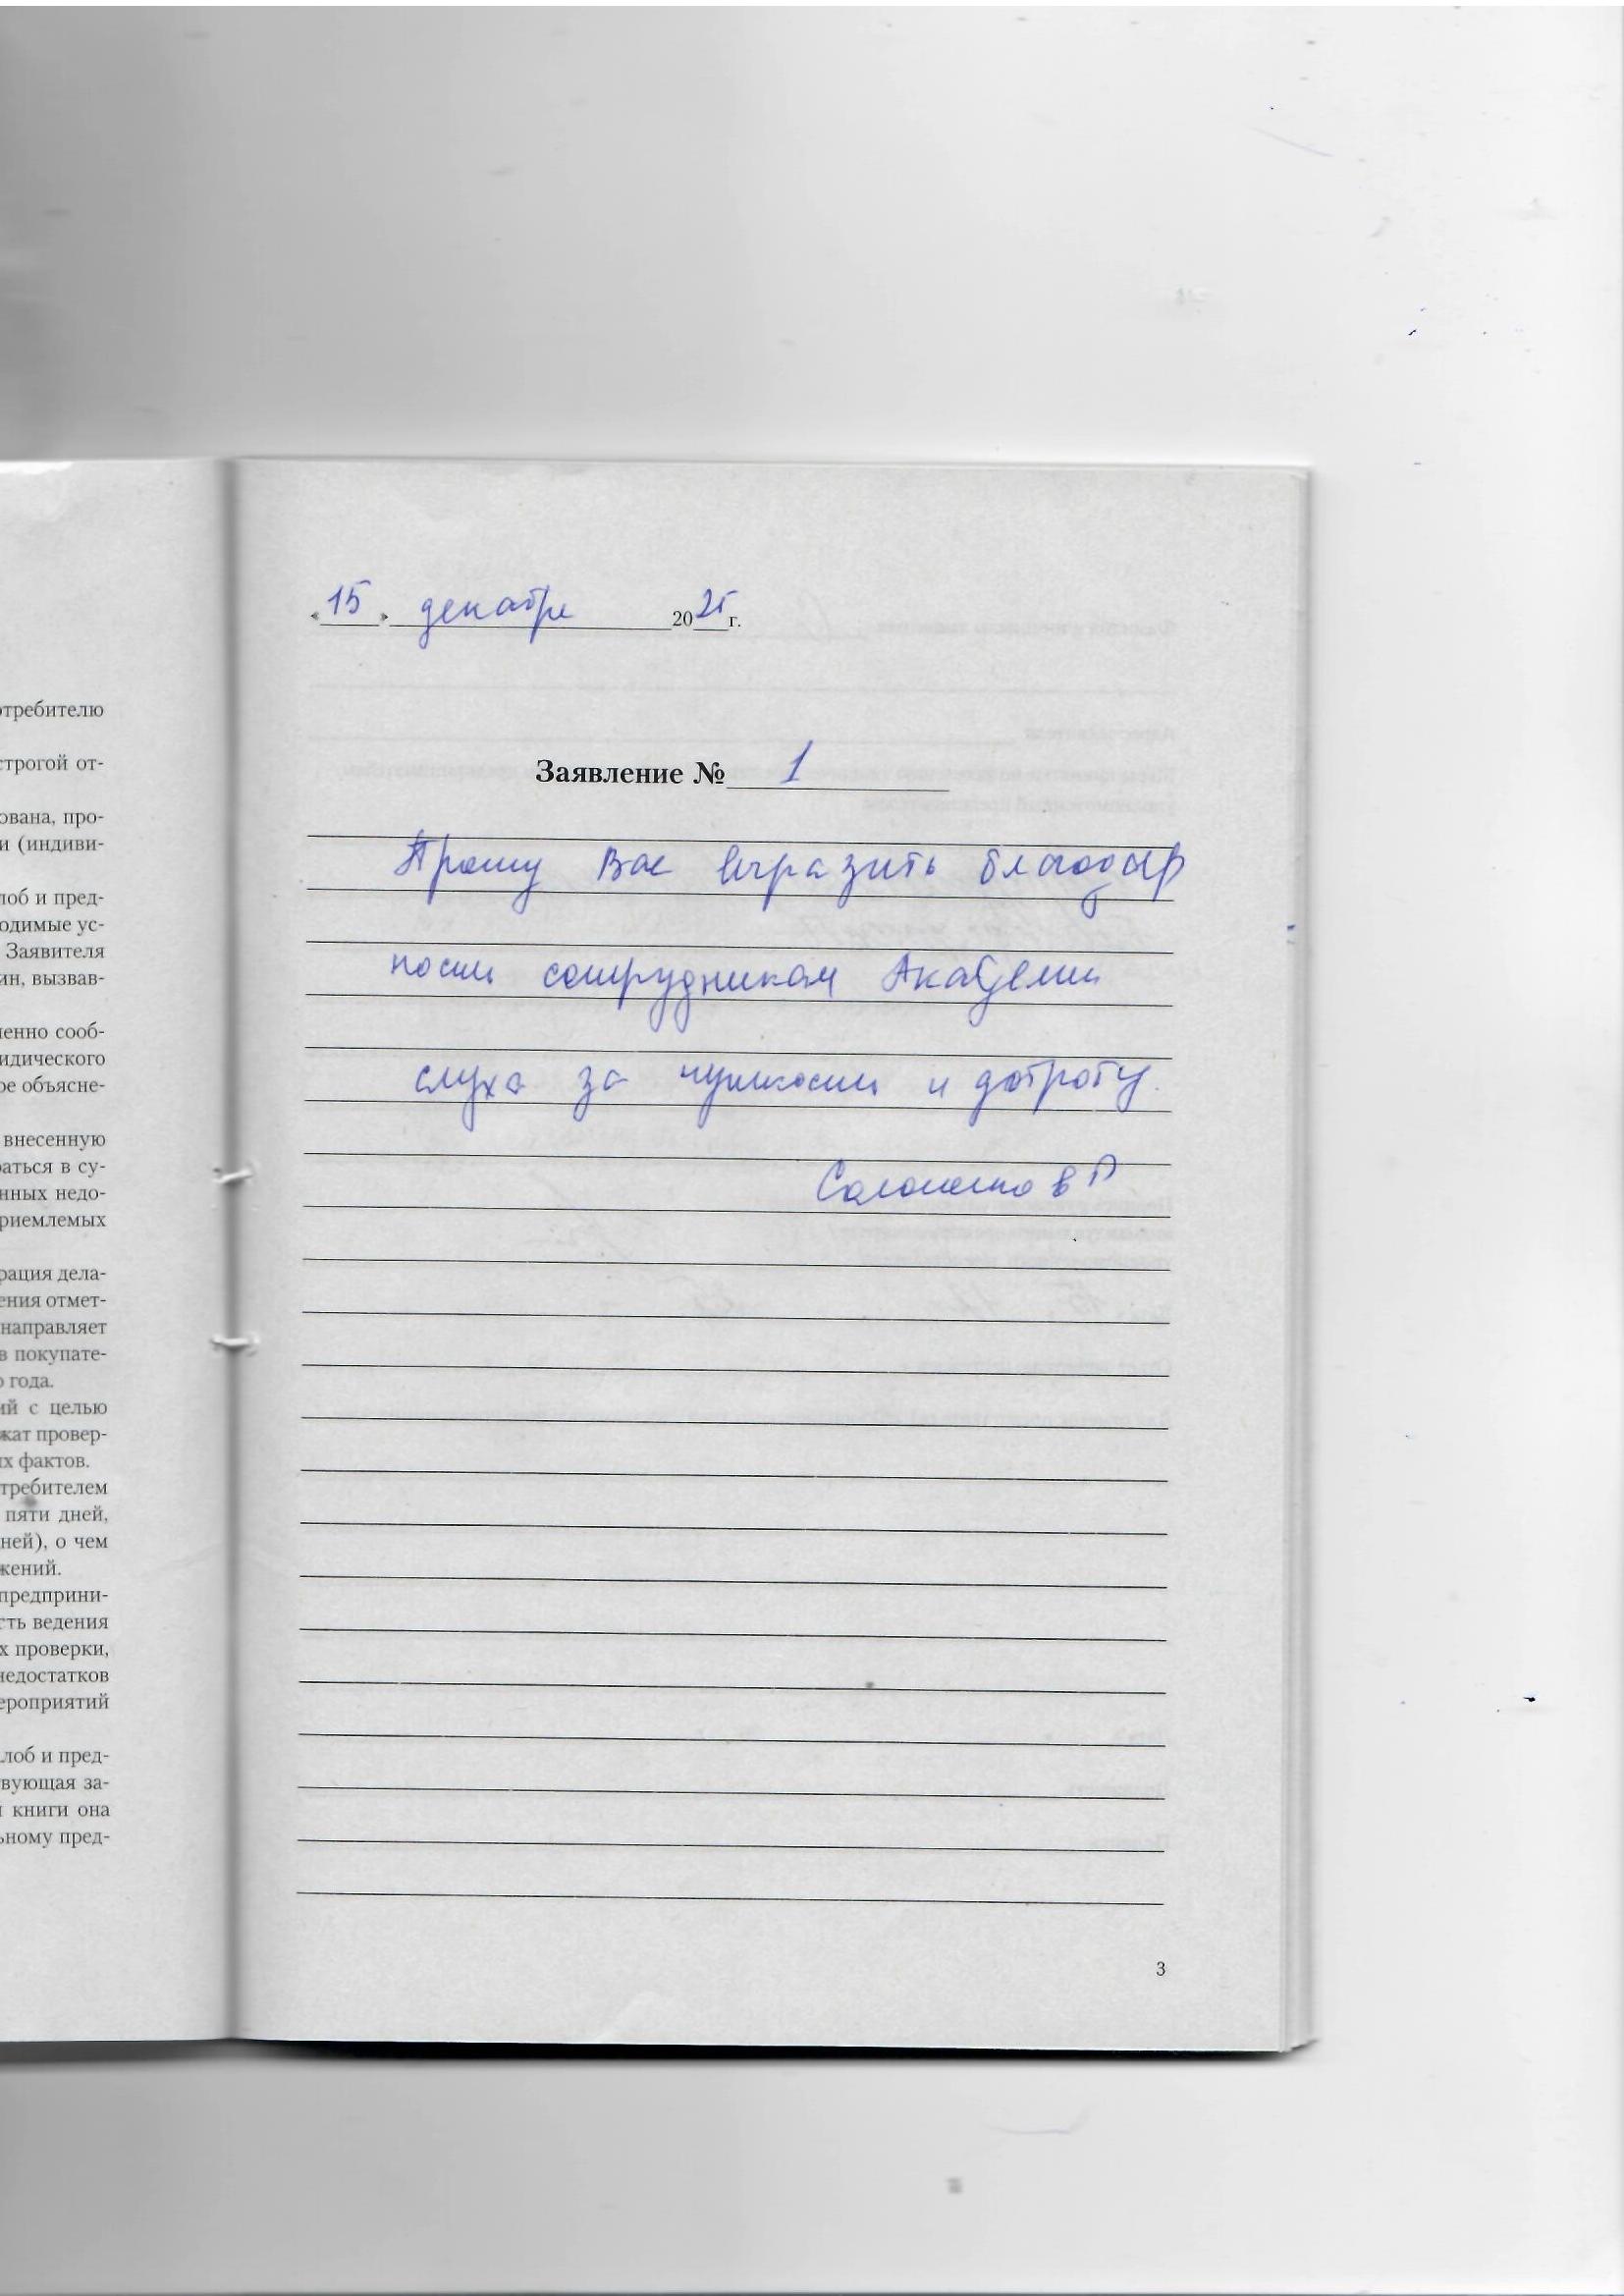 отребителю
строгой от-
ована, про-
и (индиви-
лоб и пред-
одимые ус-
Заявителя
ин, вызвав-
ленно сооб-
идического
ое объясне-
внесенную
раться в су-
нных недо-
риемлемых
рация дела-
ения отмет-
направляет
в покупате-
о года.
ий с целью
жат провер-
ых фактов.
требителем
пяти дней,
ней), о чем
жений.
предприни-
сть ведения
х проверки,
недостатков
ероприятий
лоб и пред-
твующая за-
и книги она
ьному пред-
«15» декабря 2025 г.
Заявление № 1
Прошу Вас выразить благодар
ности сотрудникам Академии
слуха за чуткости и доброту.
В П
3